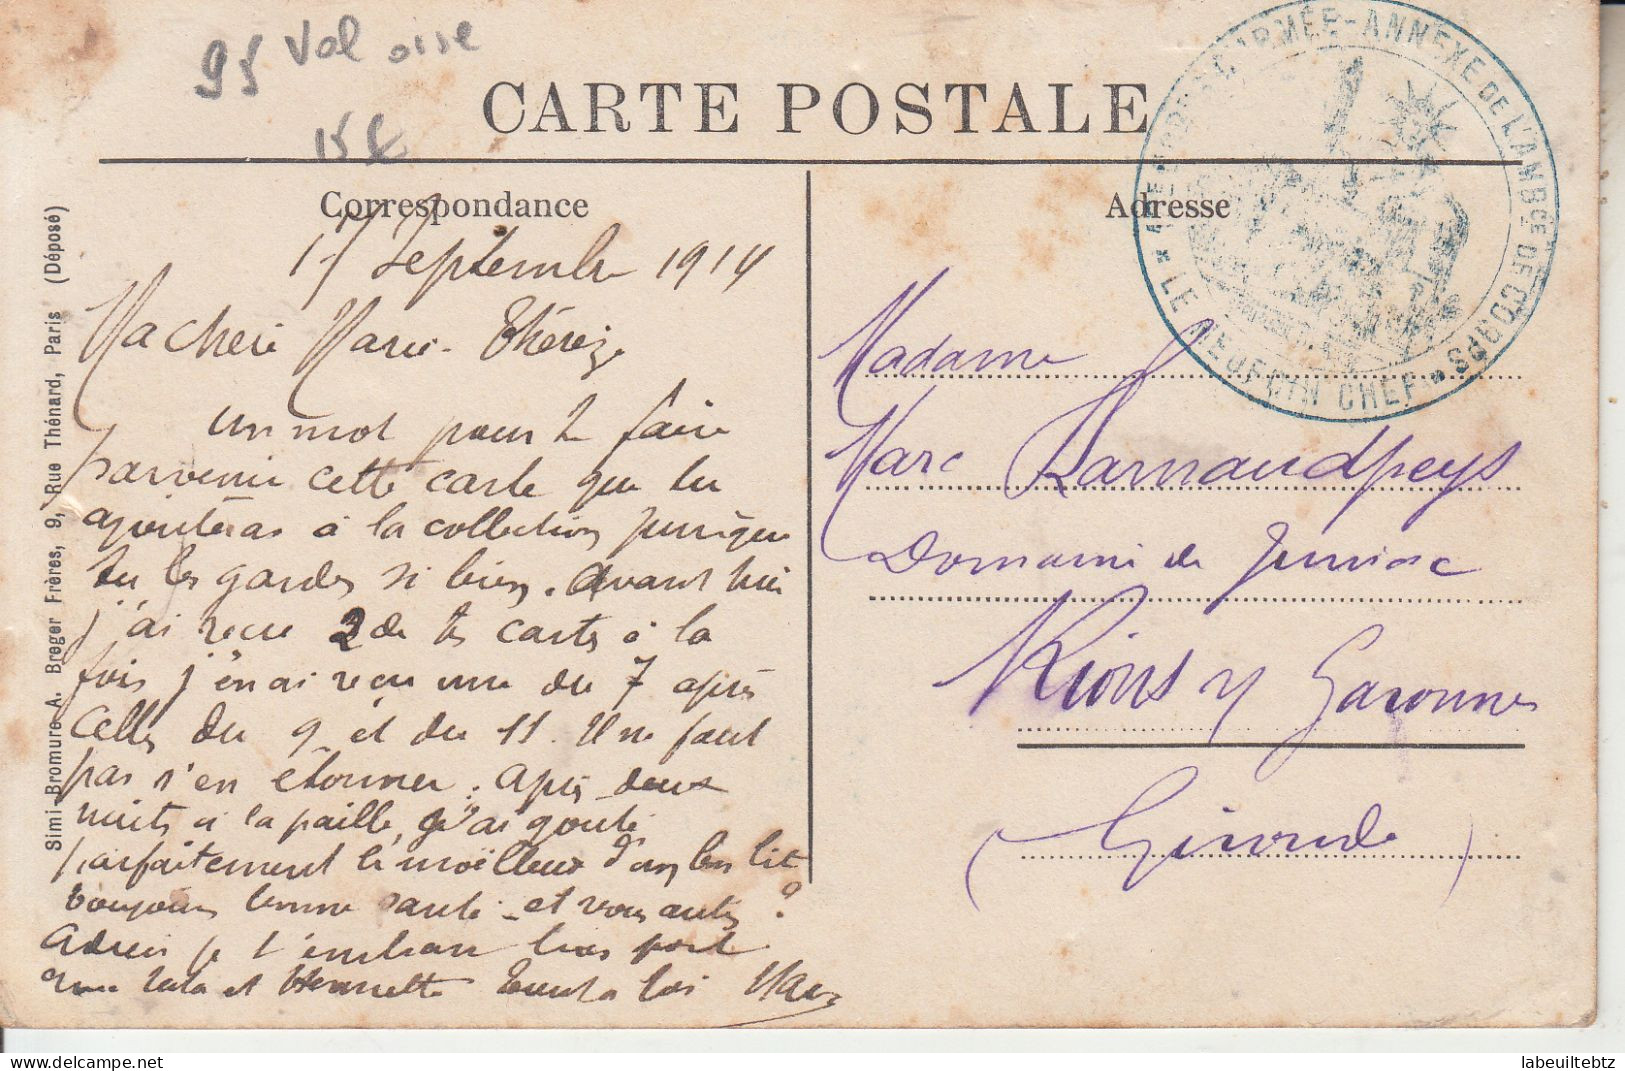 95 Val oise
15 €
CARTE POSTALE
Correspondance
Adresse
ANNEXE DE L'AMBCE DE CORPS
LE MEDECIN CHEF
Simi-Bromure A. Breger Frères, 9, Rue Thénard, Paris (Déposé)
17 Septembre 1914
Ma cherie Marie-Thérèze
un mot pour te faire
parvenir cette carte que tu
ajouteras à la collection puisque
tu les gardes si bien. Avant hier
j'ai recu 2 de tes cartes à la
fois j'en ai recu une du 7 après
celles du 9 et du 11. Il ne faut
pas s'en étonner. Après deux
nuits à la paille, j'ai gouté
parfaitement le moëlleux d'un bon lit
toujours bonne santé - et vous autres ?
Adieu je t'embrasse bien fort
et Henriette Tout à toi Marc
Madame
Marc Larnaudpeys
Domaine de Jeuniac
Rions s/ Garonne
( Gironde )
labeuiltebtz